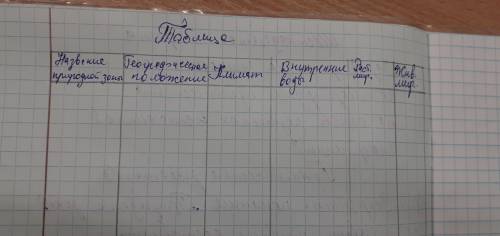 Таблица
Название природной зоны Географическое положение Климат Внутренние воды Раст. мир. Жив. мир.